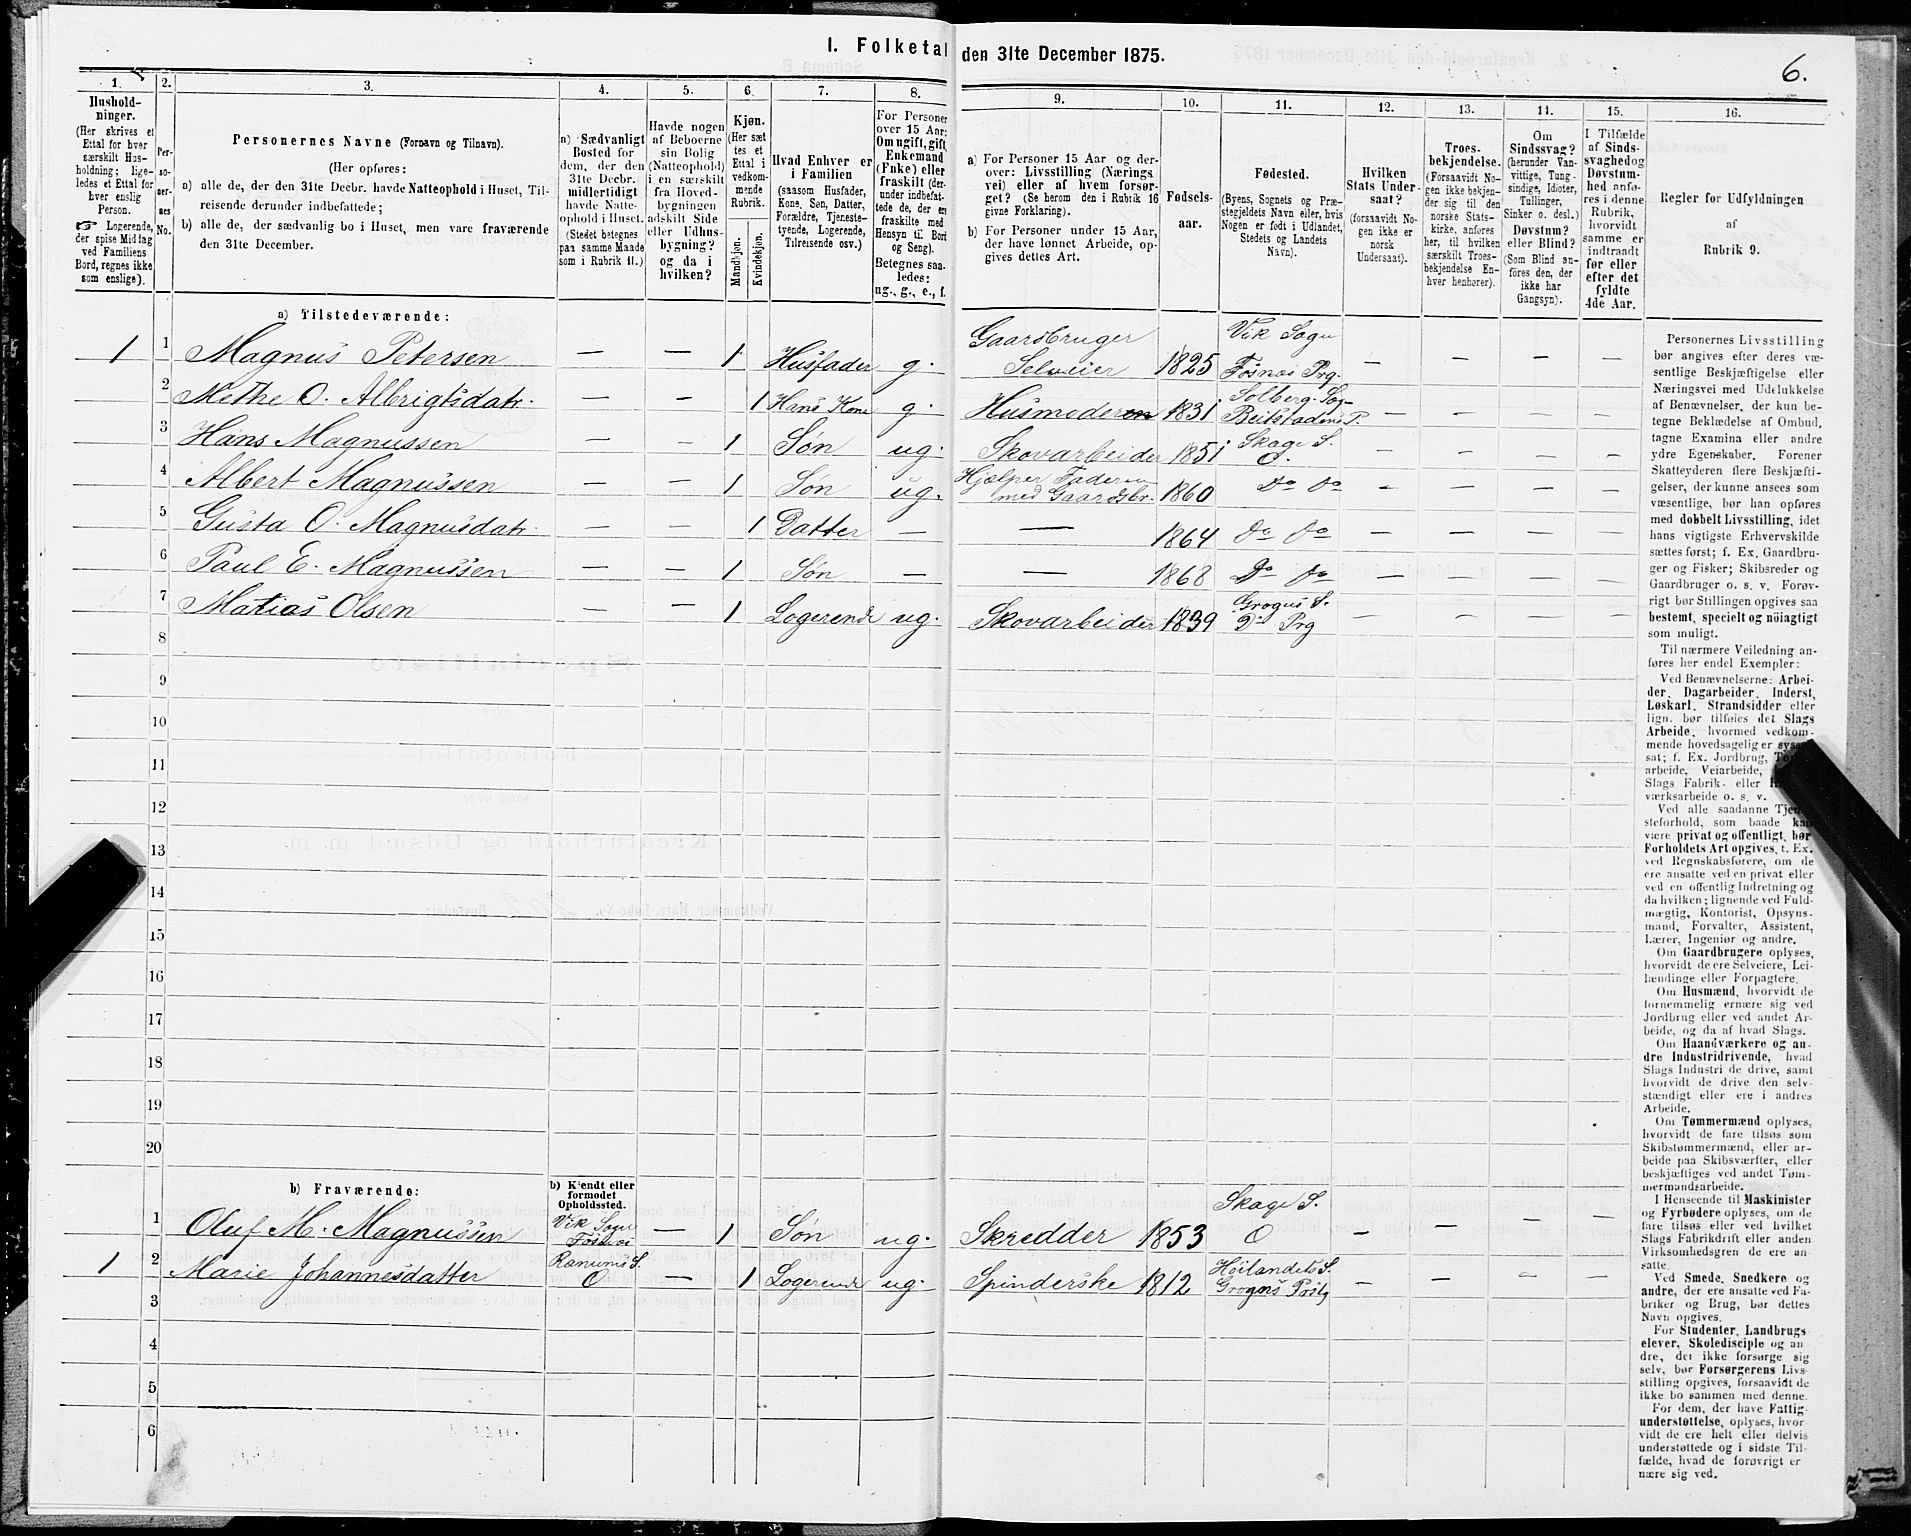 I. Folketal den 31te December 1875.
6.
1.
Hushold-
ninger.
(Her skrives et
Ettal for hver
særskilt Hus-
holdning; lige-
ledes et Ettal for
hver enslig
Person.
☞ Logerende,
der spise Middag
ved Familiens
Bord, regnes ikke
som enslige).
2.
Per-
so-
ner-
nes
No.
3.
Personernes Navne (Fornavn og Tilnavn).
(Her opføres:
a) alle de, der den 31te Decbr. havde Natteophold i Huset, Til-
reisende derunder indbefattede;
b) alle de, der sædvanlig bo i Huset, men vare fraværende
den 31te December.
4.
a) Sædvanligt
Bosted for
dem, der den
31te Decbr.
midlertidigt
havde Natte-
ophold i Huset.
(Stedet betegnes
paa samme Maade
som i Rubrik 11.)
5.
Havde nogen
af Beboerne
sin Bolig
(Natteophold)
i en særskilt
fra Hoved-
bygningen
adskilt Side
eller Udhus-
bygning?
og da i
hvilken?
6.
Kjøn.
(Her sæt
tes et
Ettal i
vedkom-
mende
Rubrik.
Mandkjøn.
Kvindekjøn.
7.
Hvad Enhver er
i Familien
(saasom Husfader,
Kone, Søn, Datter,
Forældre, Tjeneste-
tyende, Logerende,
Tilreisende osv.)
8.
For Personer
over 15 Aar:
Om ugift, gift,
Enkemand
(Enke) eller
fraskilt (der-
under indbefat-
tede de, der er
fraskilte med
Hensyn til Bord
og Seng).
Betegnes saa-
ledes:
ug., g., e., f.
9.
a) For Personer 15 Aar og der-
over: Livsstilling (Nærings
vei) eller af hvem forsør-
get? (Se herom den i Rubrik 16
givne Forklaring).
b) For Personer under 15 Aar,
der have lønnet Arbeide, op-
gives dettes Art.
10.
Fødsels-
aar.
11.
Fødested.
(Byens, Sognets og Præ-
stegjeldets Navn eller, hvis
Nogen er født i Udlandet,
Stedets og Landets
Navn).
12.
Hvilken
Stats Under-
saat?
(forsaavidt No-
gen ikke er
norsk
Undersaat).
13.
Troes-
bekjendelse.
(Forsaavidt No-
gen ikke bekjen-
der sig til den
norske Stats-
kirke, anføres
her, til hvilken
særskilt Troes-
bekjendelse En-
hver henhører).
14.
Om
Sindssvag?
(herunder Van-
vittige, Tung-
sindige, Idioter,
Tullinger,
Sinker o. desl.)
Døvstum?
eller Blind?
(Som Blind an-
føres den, der
ikke har
Gangsyn).
15.
I Tilfælde
af Sinds-
svaghed og
Døvstum-
hed anfø-
res i denne
Rubrik,
hvorvidt
samme er
indtraadt
før eller
efter det
fyldte
4de Aar.
16.
Regler for Udfyldningen
af
Rubrik 9.
a) Tilstedeværende:
1 1 Magnus Petersen — — 1 Husfader g. Gaardbruger Selveier 1825 Vik Sogn Fosnæs Prg. — — — —
2 Methe O. Albrigtsdatr. — — 1 Hans Kone g. Husmoderen 1831 Solberg Sog- Beitstadens P. — — — —
3 Hans Magnussen — — 1 Søn ug. Skovarbeider 1851 Skage S. O. — — — —
4 Albert Magnussen — — 1 Søn ug. Hjælper Faderen med Gaardsbr. 1860 Do Do — — — —
5 Gusta O. Magnusdatr. — — 1 Datter — — 1864 Do Do — — — —
6 Paul E. Magnussen — — 1 Søn — — 1868 Do Do — — — —
7 Matias Olsen — — 1 Logerende ug. Skovarbeider 1839 Grogns S. Do Prg — — — —
8
9
10
11
12
13
14
15
16
17
18
19
20
b) Fraværende:
b) Kjendt eller
formodet
Opholdssted.
1 Oluf M. Magnussen Vik Sogn Fosnæs — 1 Søn ug. Skredder 1853 Skage S. O — — — —
1 2 Marie Johannesdatter Ranums S. O — 1 Logerende ug. Spinderske 1812 Høilandets S. Grogns Prstg — — — —
3
4
5
6
Personernes Livsstilling
bør angives efter deres væ-
sentlige Beskjæftigelse eller
Næringsvei med Udelukkelse
af Benævnelser, der kun be-
tegne Beklædelse af Ombud,
tagne Examina eller andre
ydre Egenskaber. Forener
Skatteyderen flere Beskjæfti-
gelser, der kunne ansees som
væsentlige, bør han opføres
med dobbelt Livsstilling, idet
hans vigtigste Erhvervskilde
sættes først; f. Ex. Gaardbru-
ger og Fisker; Skibsreder og
Gaardbruger o. s. v. Forøv-
rigt bør Stillingen opgives saa
bestemt, specielt og nöiagtigt
som muligt.
Til nærmere Veiledning an-
føres her endel Exempler:
Ved Benævnelserne: Arbei-
der, Dagarbeider, Inderst,
Løskarl, Strandsidder eller
lign. bør tilføies det Slags
Arbeide, hvormed vedkom-
mende hovedsagelig er
sat; f. Ex. Jordbrug,
arbeide, Veiarbeide,
Slags Fabrik- eller
værksarbeide o. s. v.
Ved alle saadanne
steforhold, som baade
være privat og offentligt, bør
Forholdets Art opgives, f. Ex.
ved Regnskabsførere, om de
ere ansatte ved en privat eller
ved en offentlig Indretning og
da hvilken; lignende ved Fuld-
mægtig, Kontorist, Opsyns-
mand, Forvalter, Assistent,
Lærer, Ingeniør og andre.
Om Gaardbrugere oplyses,
hvorvidt de ere Selveiere, Lei-
lændinge eller Forpagtere.
Om Husmænd, hvorvidt de
fornemmelig ernære sig ved
Jordbrug eller ved andet Ar-
beide, og da af hvad Slags.
Om Haandværkere og an-
dre Industridrivende, hvad
Slags Industri de drive, samt
hvorvidt de drive den selv-
stændigt eller ere i andres
Arbeide.
Om Tømmermænd oplyses,
hvorvidt de fare tilsøs som
Skibstømmermænd, eller ar-
beide paa Skibsværfter, eller
beskjæftiges ved andet Tøm-
mermandsarbeide.
I Henseende til Maskinister
og Fyrbødere oplyses, om de
fare tilsøs eller ved hvilket
Slags Fabrikdrift eller anden
Virksomhedsgren de ere an-
satte.
Ved Smede, Snedkere og
andre, der ere ansatte ved Fa-
briker og Brug, bør dettes
Navn opgives.
For Studenter, Landbrugs
elever, Skoledisciple og an-
dre, der ikke forsørge sig
selv, bør Forsørgerens Livs-
stilling opgives, forsaavidt de
ikke bo sammen med denne.
For dem, der have Fattig-
understøttelse, oplyses, hvor-
vidt de ere helt eller delvis
understøttede og i sidste Til-
fælde, hvad de forøvrigt er
nære sig ved.